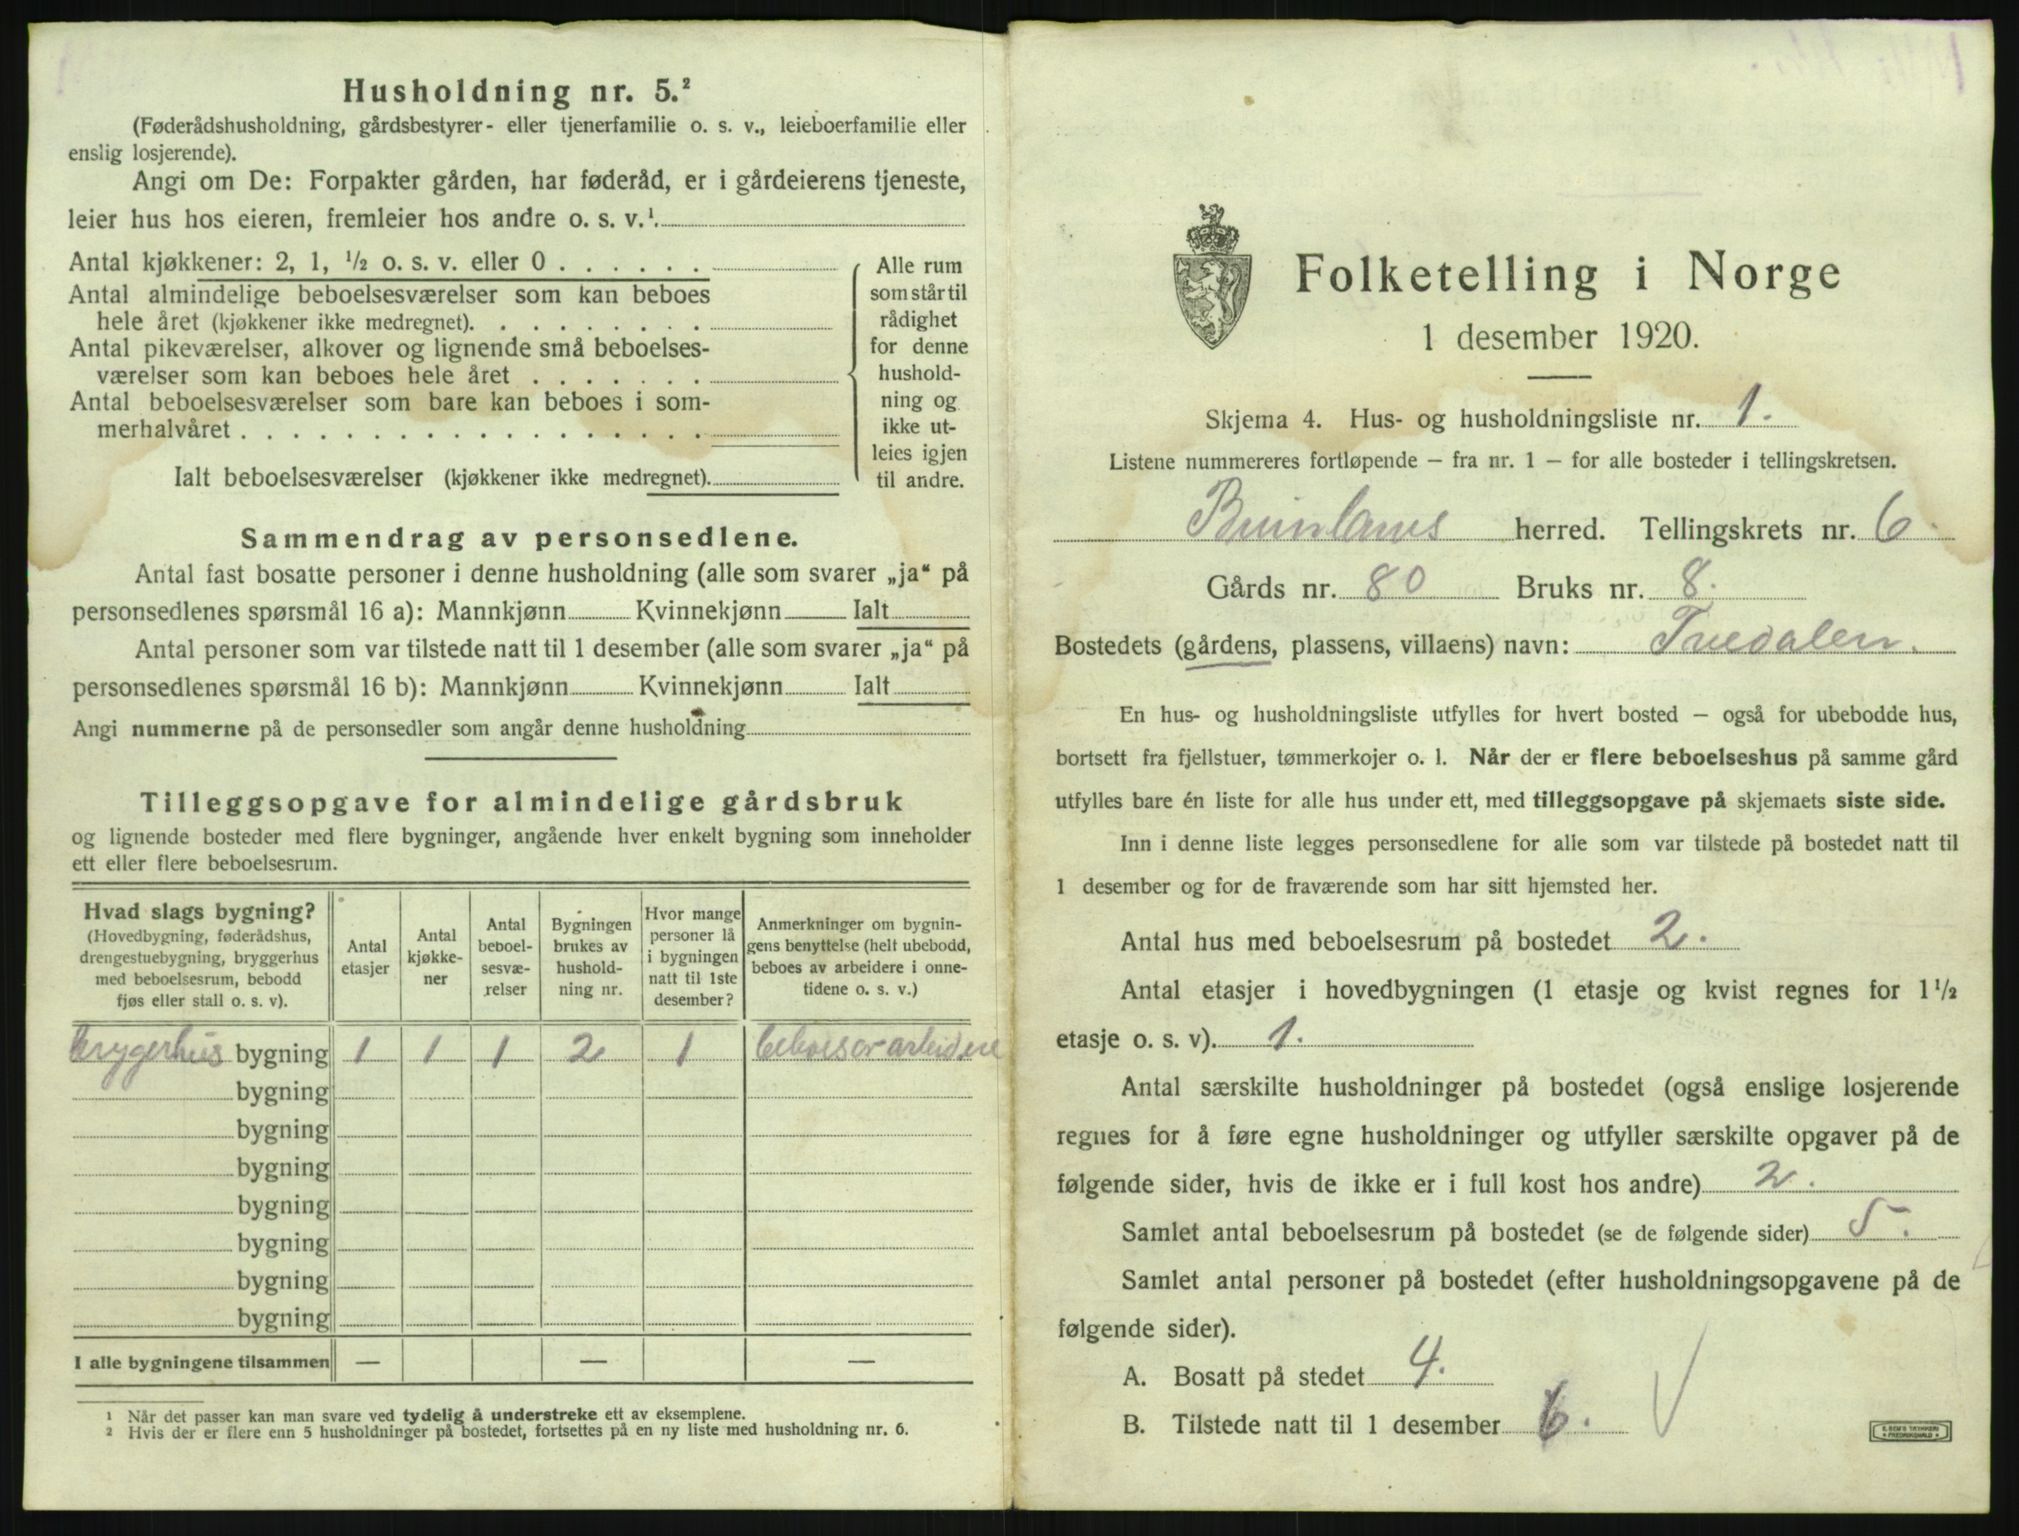 Husholdning nr. 5.²
(Føderådshusholdning, gårdsbestyrer- eller tjenerfamilie o. s. v., leieboerfamilie eller
enslig losjerende).
Angi om De: Forpakter gården, har føderåd, er i gårdeierens tjeneste,
leier hus hos eieren, fremleier hos andre o. s. v.¹
Antal kjøkkener: 2, 1, ½ o. s. v. eller 0
Antal almindelige beboelsesværelser som kan beboes
hele året (kjøkkener ikke medregnet).
Antal pikeværelser, alkover og lignende små beboelses-
værelser som kan beboes hele året
Antal beboelsesværelser som bare kan beboes i som-
merhalvåret
Ialt beboelsesværelser (kjøkkener ikke medregnet).
Alle rum
som står til
rådighet
for denne
hushold-
ning og
ikke ut-
leies igjen
til andre.
Sammendrag av personsedlene.
Antal fast bosatte personer i denne husholdning (alle som svarer „ja“ på
personsedlenes spørsmål 16 a): Mannkjønn Kvinnekjønn Ialt
Antal personer som var tilstede natt til 1 desember (alle som svarer „ja“ på
personsedlenes spørsmål 16 b): Mannkjønn Kvinnekjønn Ialt
Angi nummerne på de personsedler som angår denne husholdning
Tilleggsopgave for almindelige gårdsbruk
og lignende bosteder med flere bygninger, angående hver enkelt bygning som inneholder
ett eller flere beboelsesrum.
Hvad slags bygning?
(Hovedbygning, føderådshus,
drengestuebygning, bryggerhus
med beboelsesrum, bebodd
fjøs eller stall o. s. v).
Antal
etasjer
Antal
kjøkke-
ner
Antal
beboel-
sesvæ-
relser
Bygningen
brukes av
hushold-
ning nr.
Hvor mange
personer lå
i bygningen
natt til 1ste
desember?
Anmerkninger om bygnin-
gens benyttelse (helt ubebodd,
beboes av arbeidere i onne-
tidene o. s. v.)
brygerhus bygning 1 1 1 2 1 beboes av arbeidere
bygning
bygning
bygning
bygning
bygning
bygning
bygning
I alle bygningene tilsammen — — —
¹ Når det passer kan man svare ved tydelig å understreke ett av eksemplene.
² Hvis der er flere enn 5 husholdninger på bostedet, fortsettes på en ny liste med husholdning nr. 6.
Folketelling i Norge
1 desember 1920.
Skjema 4. Hus- og husholdningsliste nr. 1.
Listene nummereres fortløpende — fra nr. 1 — for alle bosteder i tellingskretsen.
Brunlanes herred. Tellingskrets nr. 6.
Gårds nr. 80 Bruks nr. 8.
Bostedets (gårdens, plassens, villaens) navn: Tvedalen.
En hus- og husholdningsliste utfylles for hvert bosted — også for ubebodde hus,
bortsett fra fjellstuer, tømmerkojer o. l. Når der er flere beboelseshus på samme gård
utfylles bare én liste for alle hus under ett, med tilleggsopgave på skjemaets siste side.
Inn i denne liste legges personsedlene for alle som var tilstede på bostedet natt til
1 desember og for de fraværende som har sitt hjemsted her.
Antal hus med beboelsesrum på bostedet 2.
Antal etasjer i hovedbygningen (1 etasje og kvist regnes for 1½
etasje o. s. v). 1.
Antal særskilte husholdninger på bostedet (også enslige losjerende
regnes for å føre egne husholdninger og utfyller særskilte opgaver på de
følgende sider, hvis de ikke er i full kost hos andre) 2.
Samlet antal beboelsesrum på bostedet (se de følgende sider) 5.
Samlet antal personer på bostedet (efter husholdningsopgavene på de
følgende sider).
A. Bosatt på stedet 4.
B. Tilstede natt til 1 desember 6.